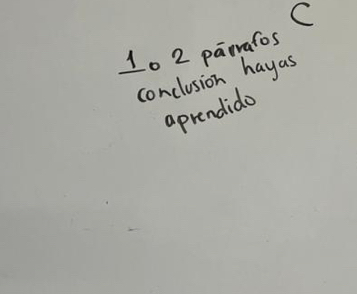 C
1 o 2 párrafos
conclusión hayas
aprendido